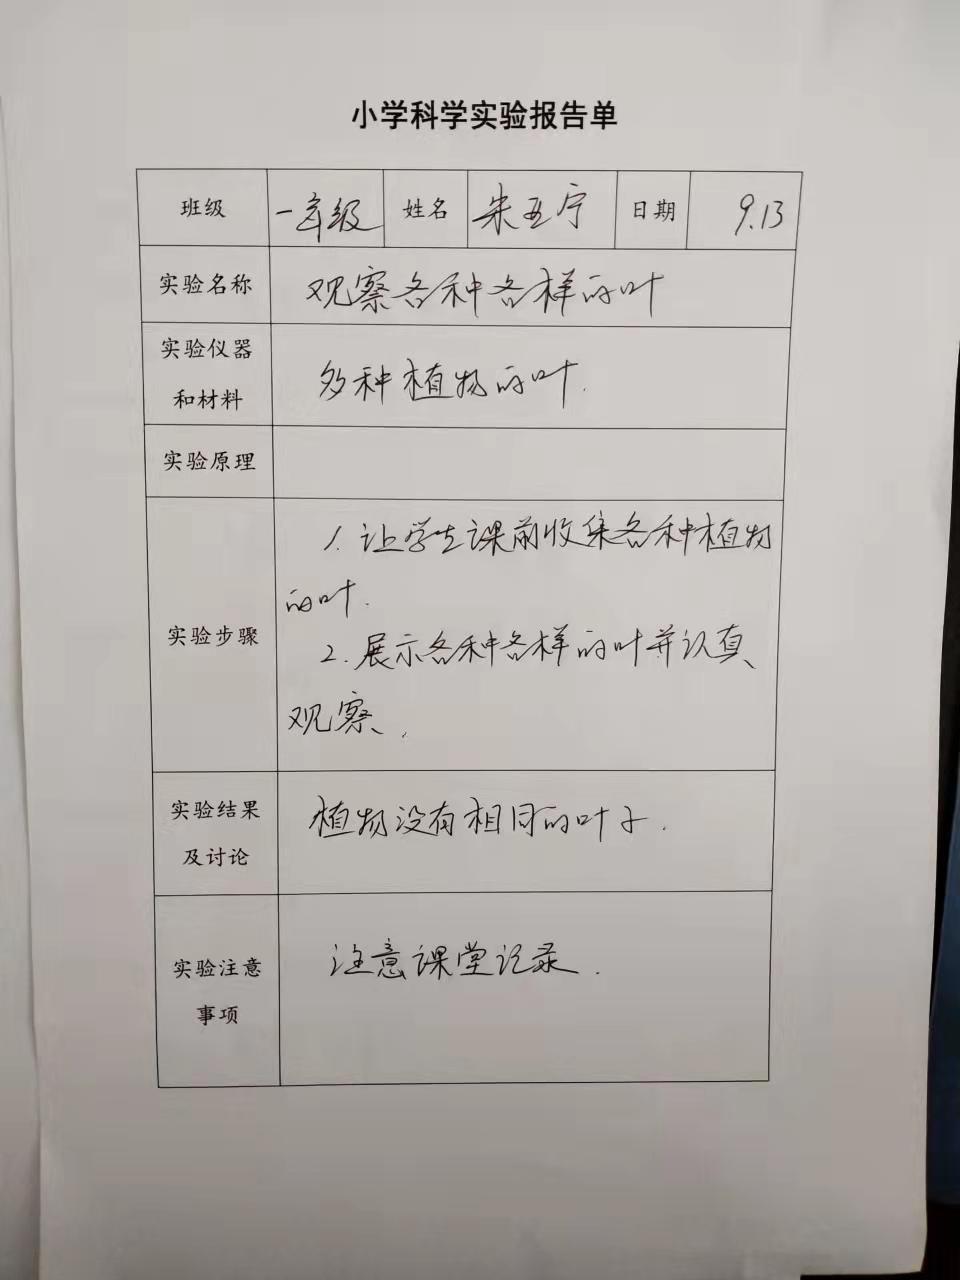 小学科学实验报告单
班级 一年级 姓名 朱五宁 日期 9.13
实验名称 观察各种各样的叶
实验仪器
和材料
多种植物的叶.
实验原理
实验步骤
1. 让学生课前收集各种植物
的叶.
2. 展示各种各样的叶并认真
观察.
实验结果
及讨论
植物没有相同的叶子.
实验注意
事项
注意课堂记录.